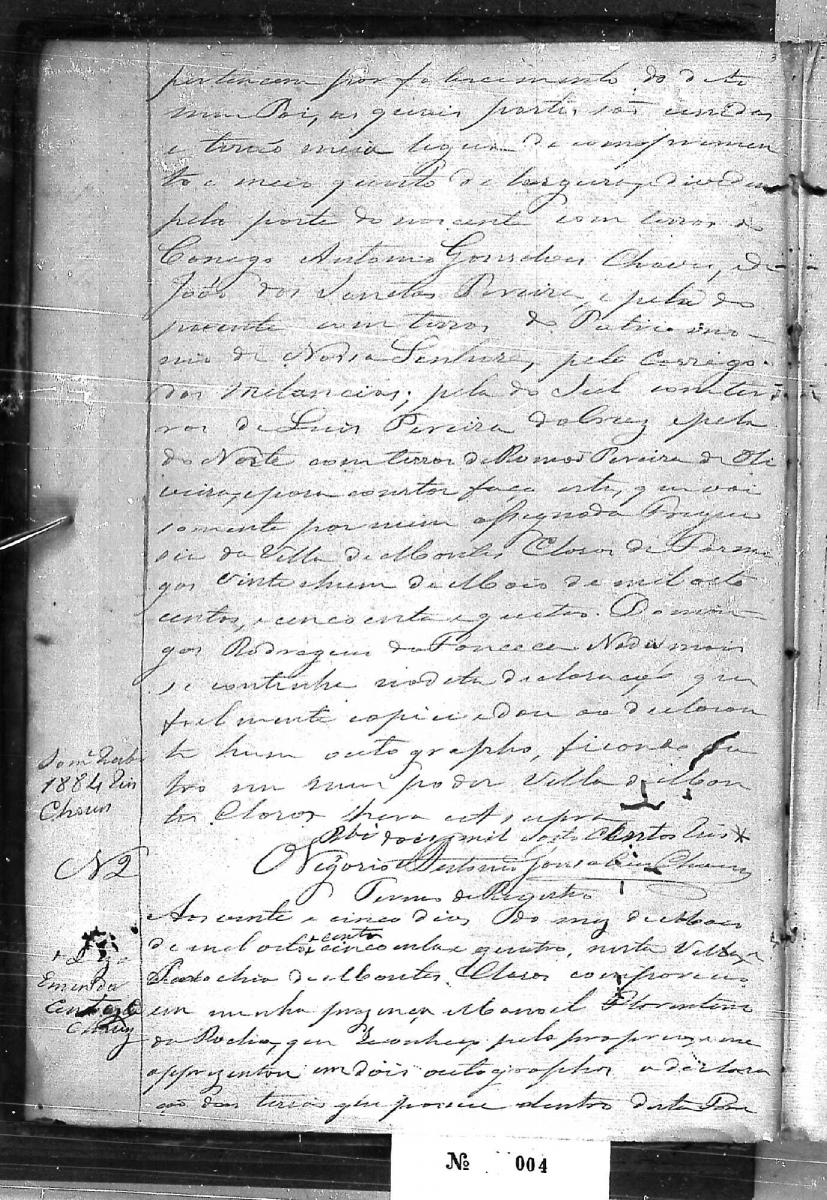 3
pertencem por falecimento do dito
meu Pai, as quais partes são unidas
e terão meia legua de comprimen
to e meio quarto de largura, e dividem
pela parte do nascente com terras do
Conego Antonio Gonsalves Chaves, e de
João dos Sanctos Pereira, e pela do
poente com terras do Patrimo-
nio de Nossa Senhora, pelo Corrego
das Melancias; pela do Sul com ter
ras de Luis Pereira da Cruz e pela
do Norte com terras de Romão Pereira de Oli
veira, e para constar faço esta, que vai
somente por mim assignada Fregue
sia da Villa de Montes Claros de Formi
gas vinte e hum de Maio de mil oito
centos, e cencoenta e quatro. Domin-
gos Rodrigues da Fonceca Nada mais
se continha na dita declaração, que
fielmente copiei e dou ao declaran
te hum autographo, ficando ou
tro em meu poder Villa de Mon
tes Claros hera ut supra
Rbi dous mil sete Centos reis
O Vigario Antonio Gonsalves Chaves
Termo de Registro
Aos vinte e cinco dias do mez de Maio
de mil oito centos cincoenta e quatro, nesta Villa e
Parochia de Montes Claros compareceo
em minha prezença Manoel Florentino
da Rocha, que reconheço pelo proprio, e me
apprezentou em dois autographos a declara
ção das terras que possue dentro desta Par
1884
Chaves
N2
Emenda
Centos
Chaves
Nº 004